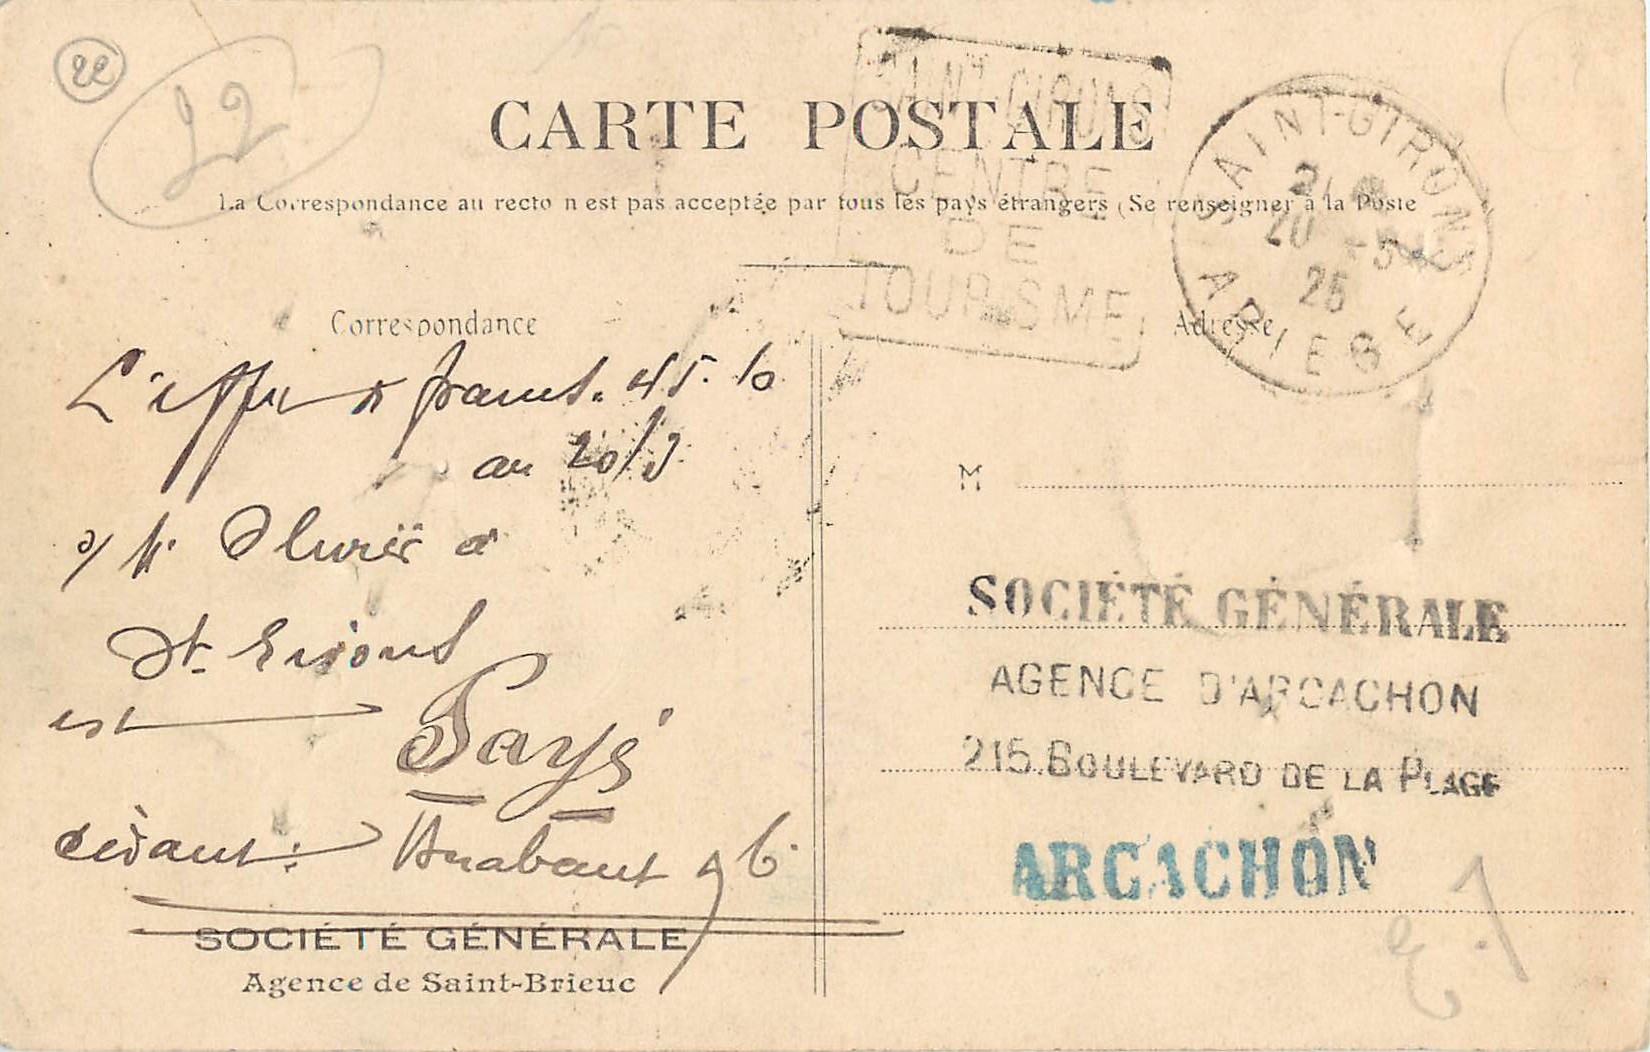 22
22
CARTE POSTALE
La Correspondance au recto n est pas acceptée par tous les pays étrangers (Se renseigner à la Poste
SAINT-GIRONS
CENTRE
DE
TOURISME
SAINT-GIRONS
20 -5
25
ARIEGE
Correspondance
Adresse
L'effet de francs. 45.10
au 20/5
s/ M.
St. Girons
est Payé
cédant:
SOCIÉTÉ GÉNÉRALE
Agence de Saint-Brieuc
M
SOCIÉTÉ GÉNÉRALE
AGENCE D'ARCACHON
215, BOULEVARD DE LA PLAGE
ARCACHON